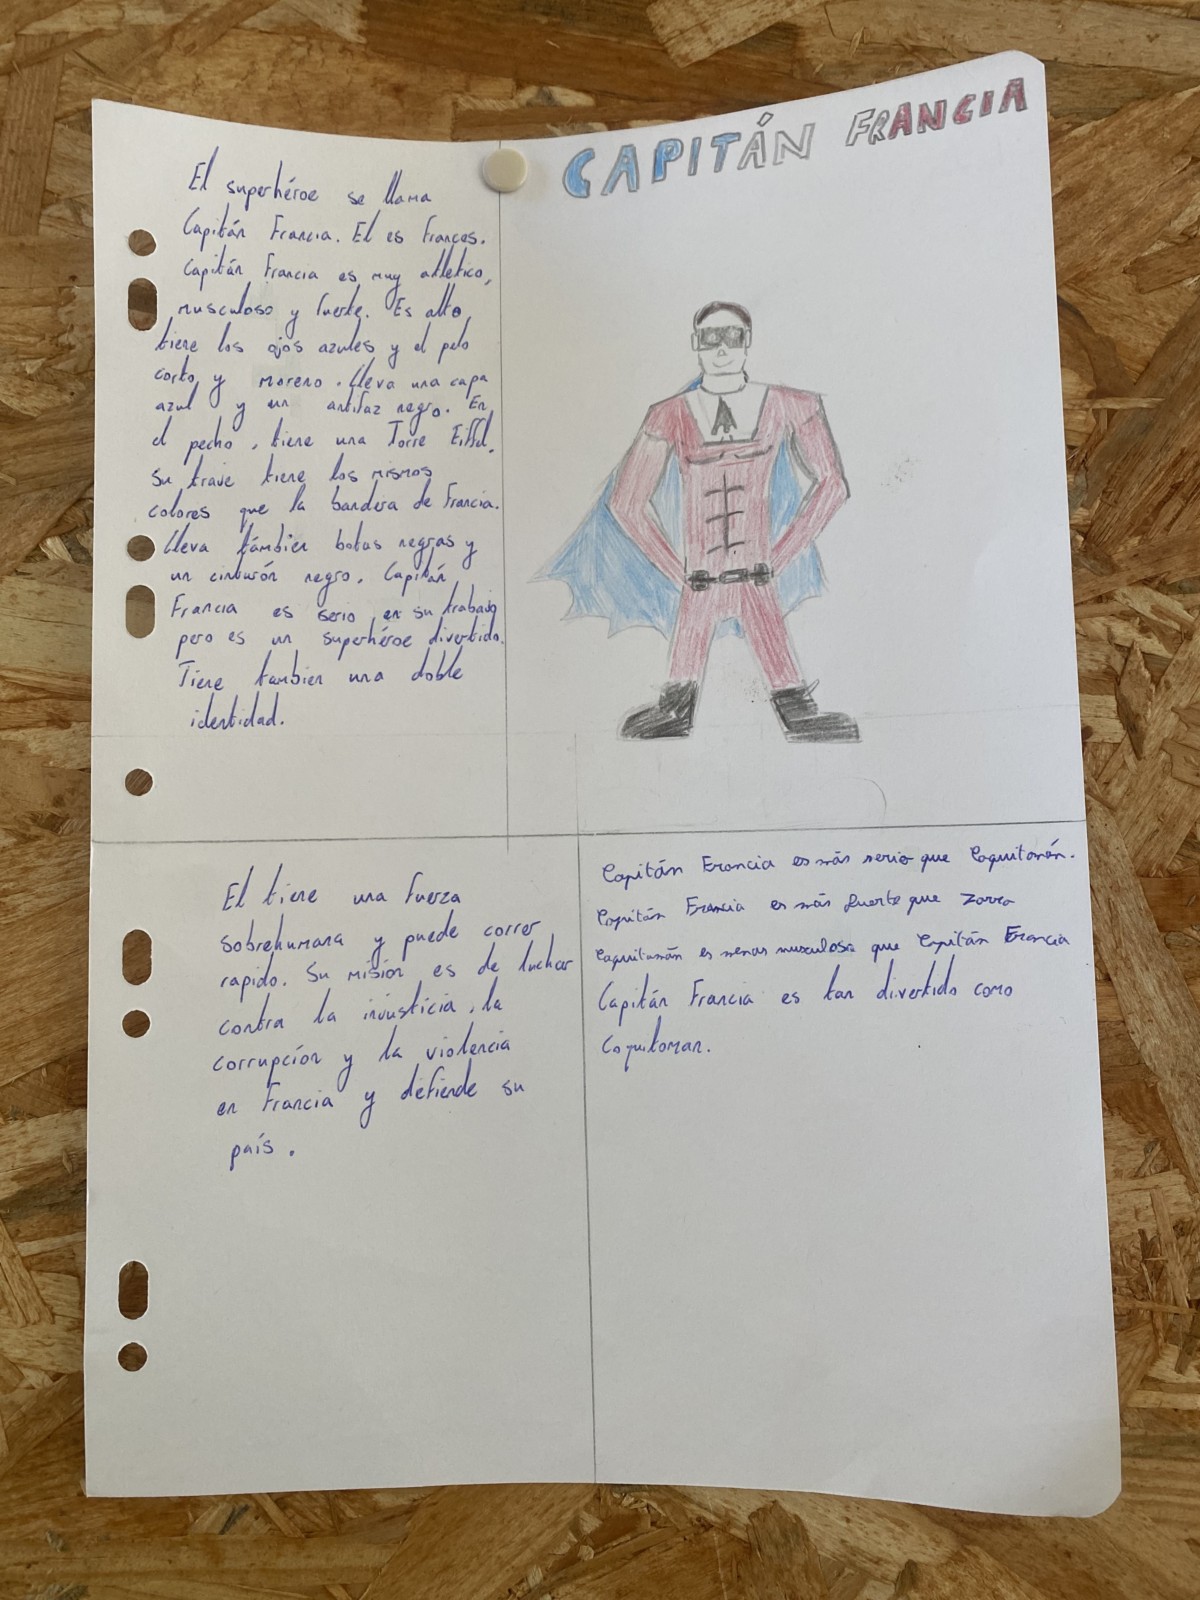 CAPITÁN FRANCIA
El superhéroe se llama
Capitán Francia. El es frances.
Capitán Francia es muy atletico,
musculoso y fuerte. Es alto,
tiene los ojos azules y el pelo
corto y moreno. lleva una capa
azul y un antifaz negro. En
el pecho, tiene una Torre Eiffel.
Su trave tiene los mismos
colores que la bandera de Francia.
lleva támbien botas negras y
un cinturón negro. Capitán
Francia es serio en su trabajo
pero es un superhéroe divertido.
Tiene tambien una doble
identidad.
El tiene una fuerza
sobrehumana y puede correr
rapido. Su misión es de luchar
contra la injusticia, la
corrupción y la violencia
en Francia y defiende su
país.
Capitán Francia es más serio que Coquitomán.
Capitán Francia es más fuerte que Zorro
Coquitomán es menos musculoso que Capitán Francia
Capitán Francia es tan divertido como
Coquitoman.